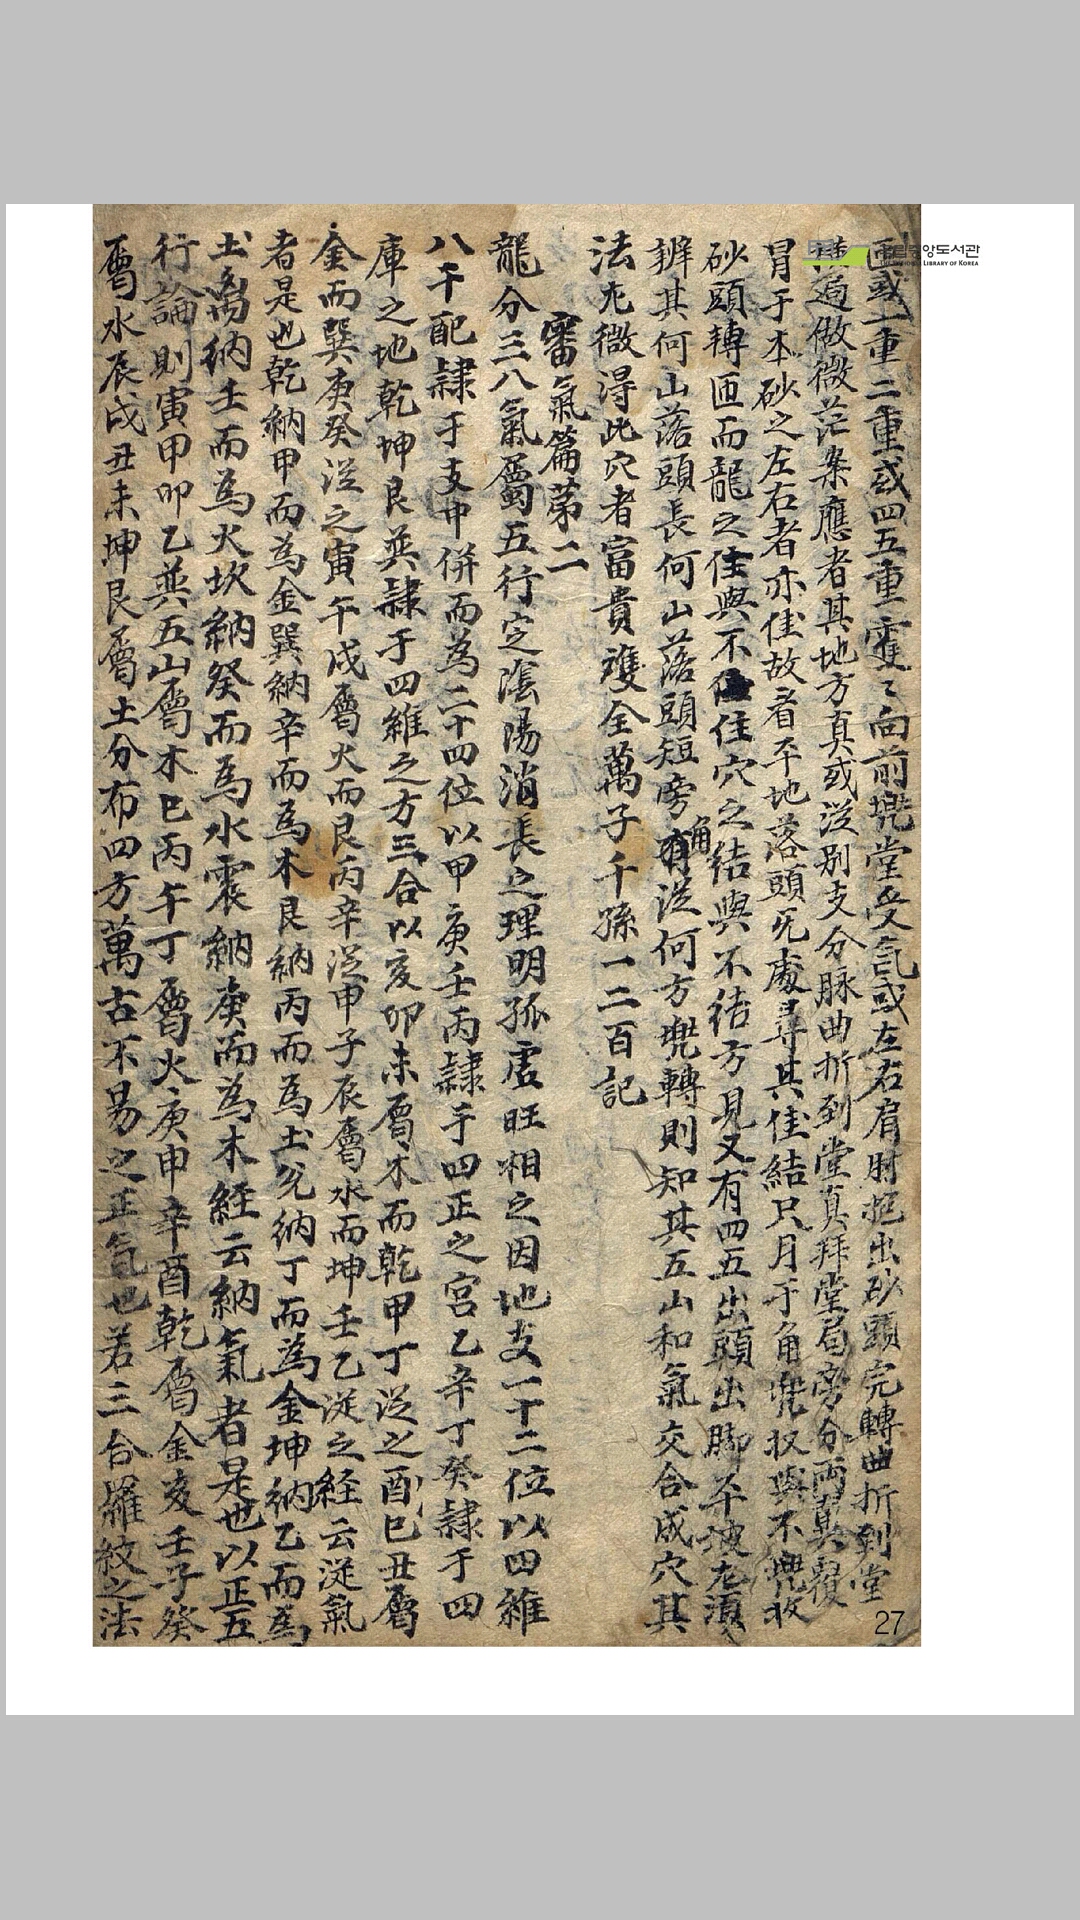 匝或一重二重或四五重重〻向前兠堂受氣或左右肩肘抱出砂頭完轉曲折到堂
過傲微茫案應者其地方真或從別支分脉曲折到堂真拜堂局旁分兩翼
胃于本砂之左右者亦佳故看平地落頭旡處尋其佳結只月于角兠收與不兠收
砂頭轉匝而龍之住與不住穴之結與不結方見又有四五出頭出脚平坡尤須
辨其何山落頭長何山落頭短旁有角從何方兠轉則知其五山和氣交合成穴其
法尤微得此穴者富貴雙全萬子千孫一二百記
審氣篇苐二
龍分三八氣屬五行定陰陽消長之理明孤虛旺相之因地支一十二位以四維
八干配隷于支中併而為二十四位以甲庚壬丙隷于四正之宮乙辛丁癸隷于四
庫之地乾坤艮巽隷于四維之方三合以亥卯未屬木而乾甲丁從之酉巳丑屬
金而巽庚癸從之寅午戌屬火而艮丙辛從申子辰屬水而坤壬乙從之経云從氣
者是也乾納甲而為金巽納辛而為木艮納丙而為土兌納丁而為金坤納乙而為
土离納壬而為火坎納癸而為水震納庚而為木経云納氣者是也以正五
行論則寅甲卯乙巽五山屬木巳丙午丁屬火庚申辛酉乾屬金亥壬子癸
屬水辰戌丑未坤艮屬土分布四方萬古不易之正氣也若三合羅紋之法
27
국립중앙도서관
THE NATIONAL LIBRARY OF KOREA